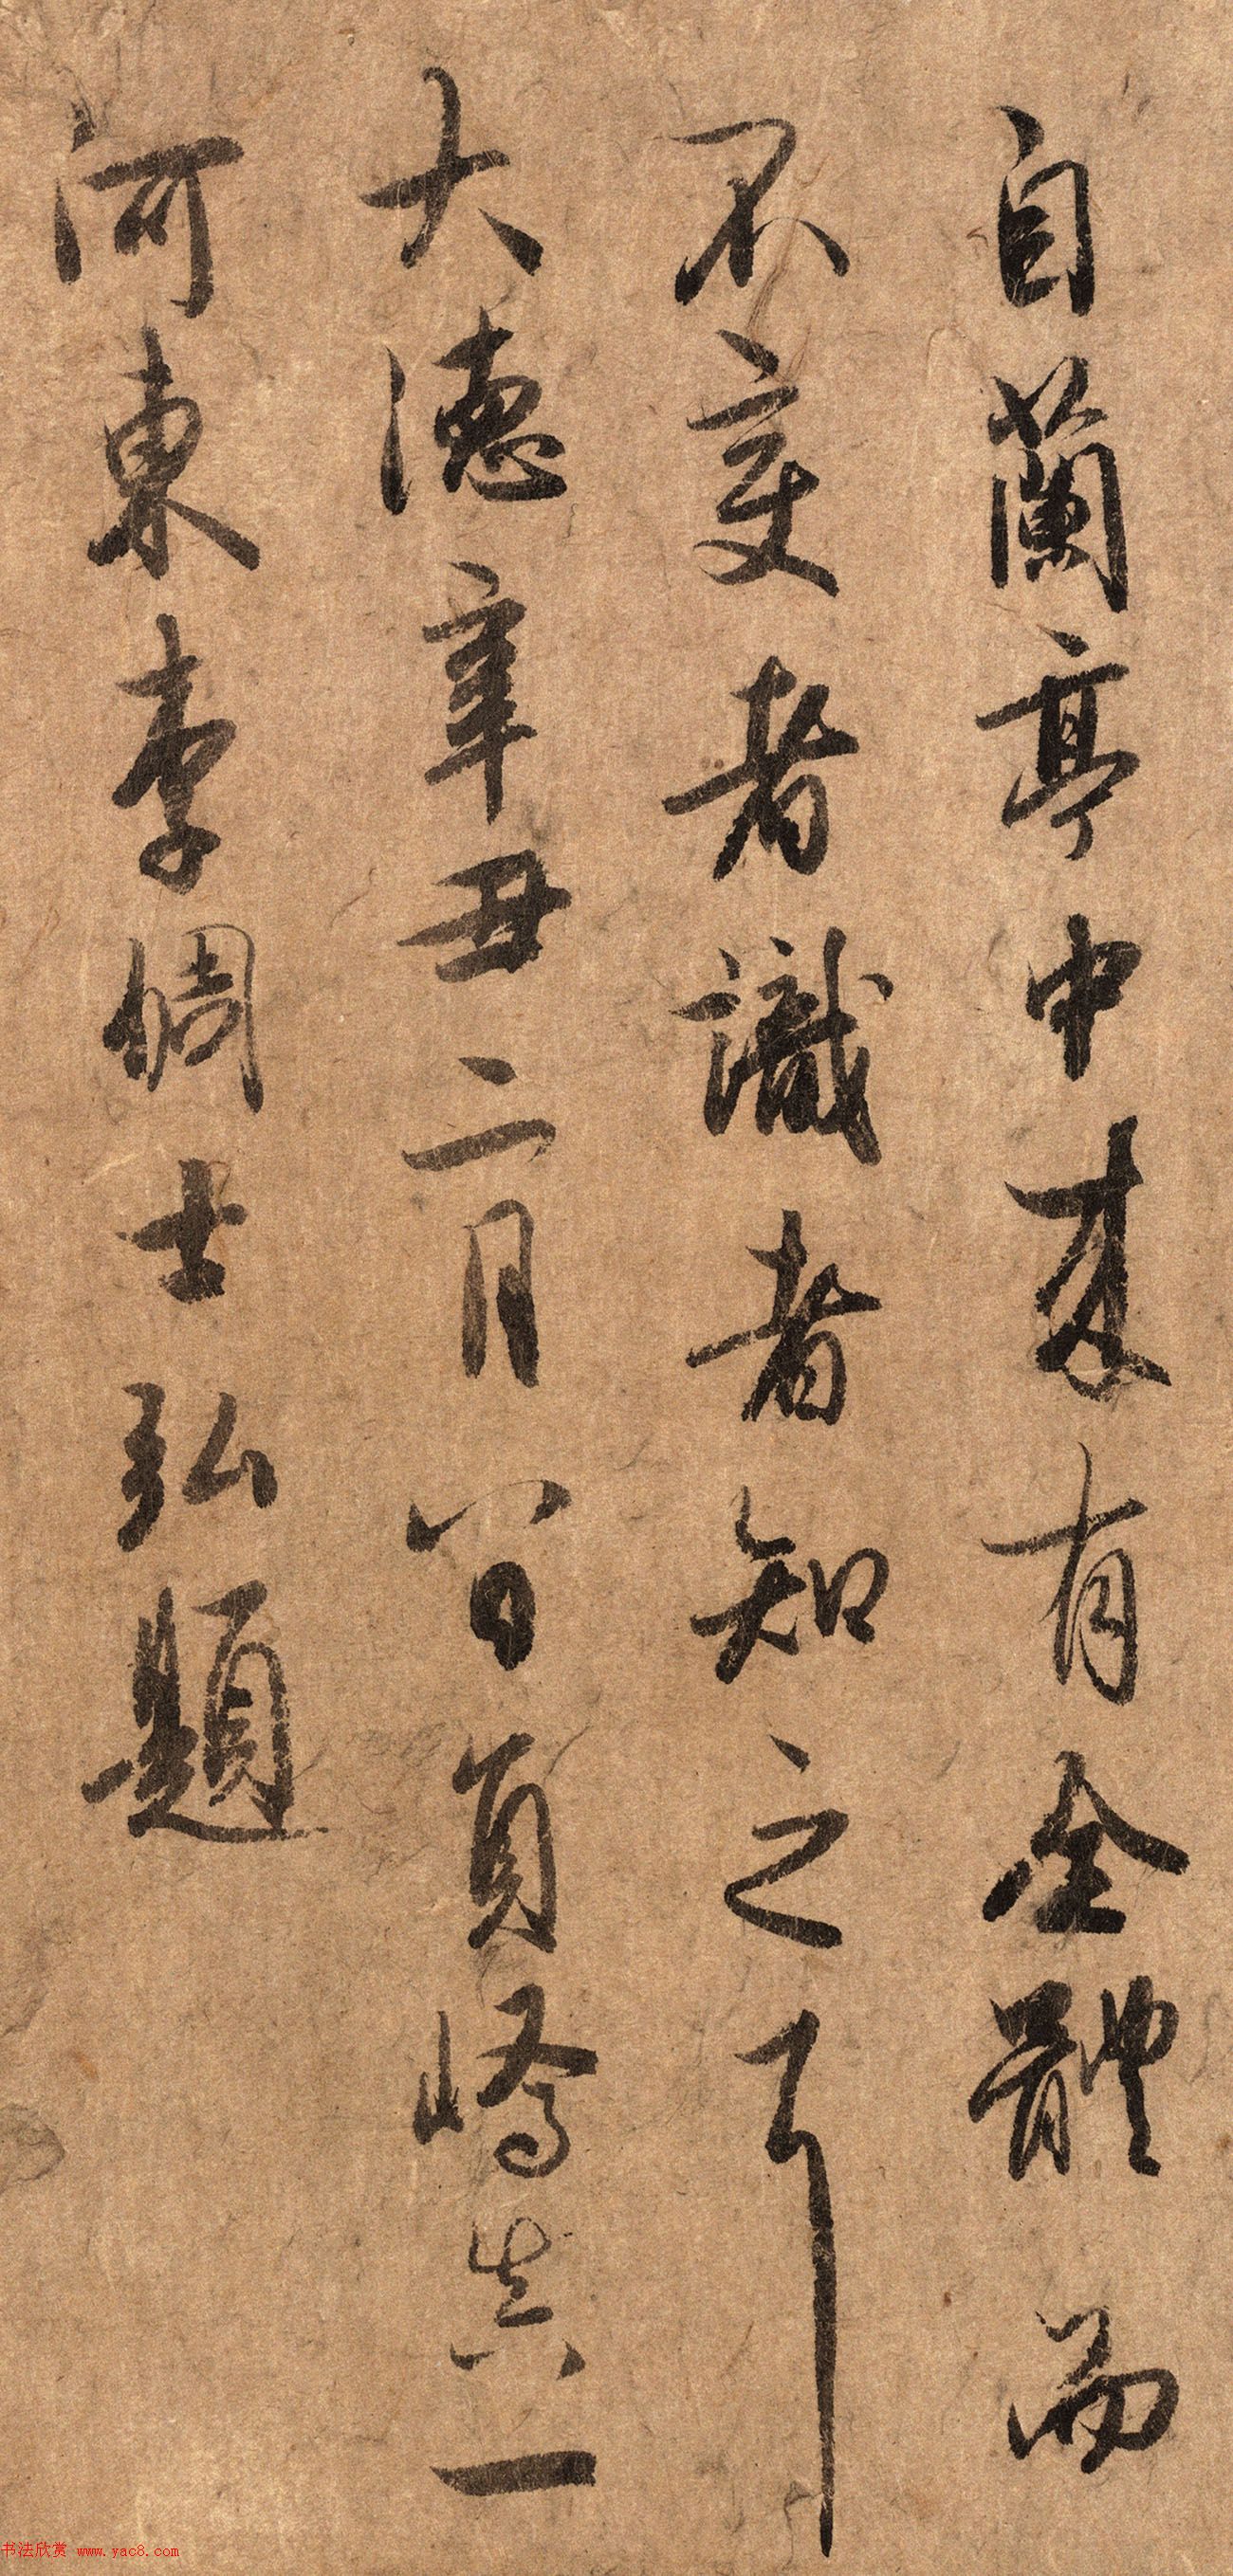 自蘭亭中來有全體而
不變者識者知之耳
大德辛丑二月八日員嶠真一
河東李倜士弘題
书法欣赏 www.yac8.com